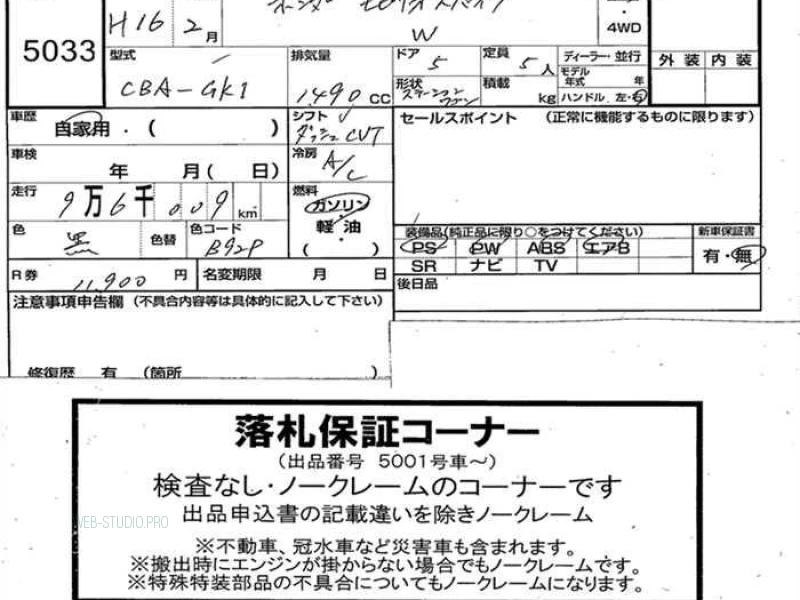 5033
H16 2月
W
4WD
型式
CBA-GK1
排気量
1,490 CC
ドア 5
定員 5人
ディーラー・並行
モデル年式 年
ハンドル 左・右
形状 ステーションワゴン
積載 kg
外装 内装
車歴
自家用・( )
シフト
ダッシュ CVT
セールスポイント (正常に機能するものに限ります)
車検
年 月( 日)
冷房
A/C
走行
9万6千009km
燃料
ガソリン
軽油
( )
色
黒
色替
色コード
B92P
装備品(純正品に限り○をつけてください)
新車保証書
PS PW ABS エアB
SR ナビ TV
有・無
R券 11,900円
名変期限 月 日
後日品
注意事項申告欄 (不具合内容等は具体的に記入して下さい)
修復歴 有 (箇所 )
落札保証コーナー
(出品番号 5001号車~)
検査なし・ノークレームのコーナーです
出品申込書の記載違いを除きノークレーム
※不動車、冠水車など災害車も含まれます。
※搬出時にエンジンが掛からない場合でもノークレームです。
※特殊特装部品の不具合についてもノークレームになります。
WEB-STUDIO.PRO